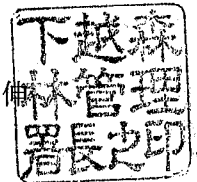 下越森
伸
林管理
署長之印